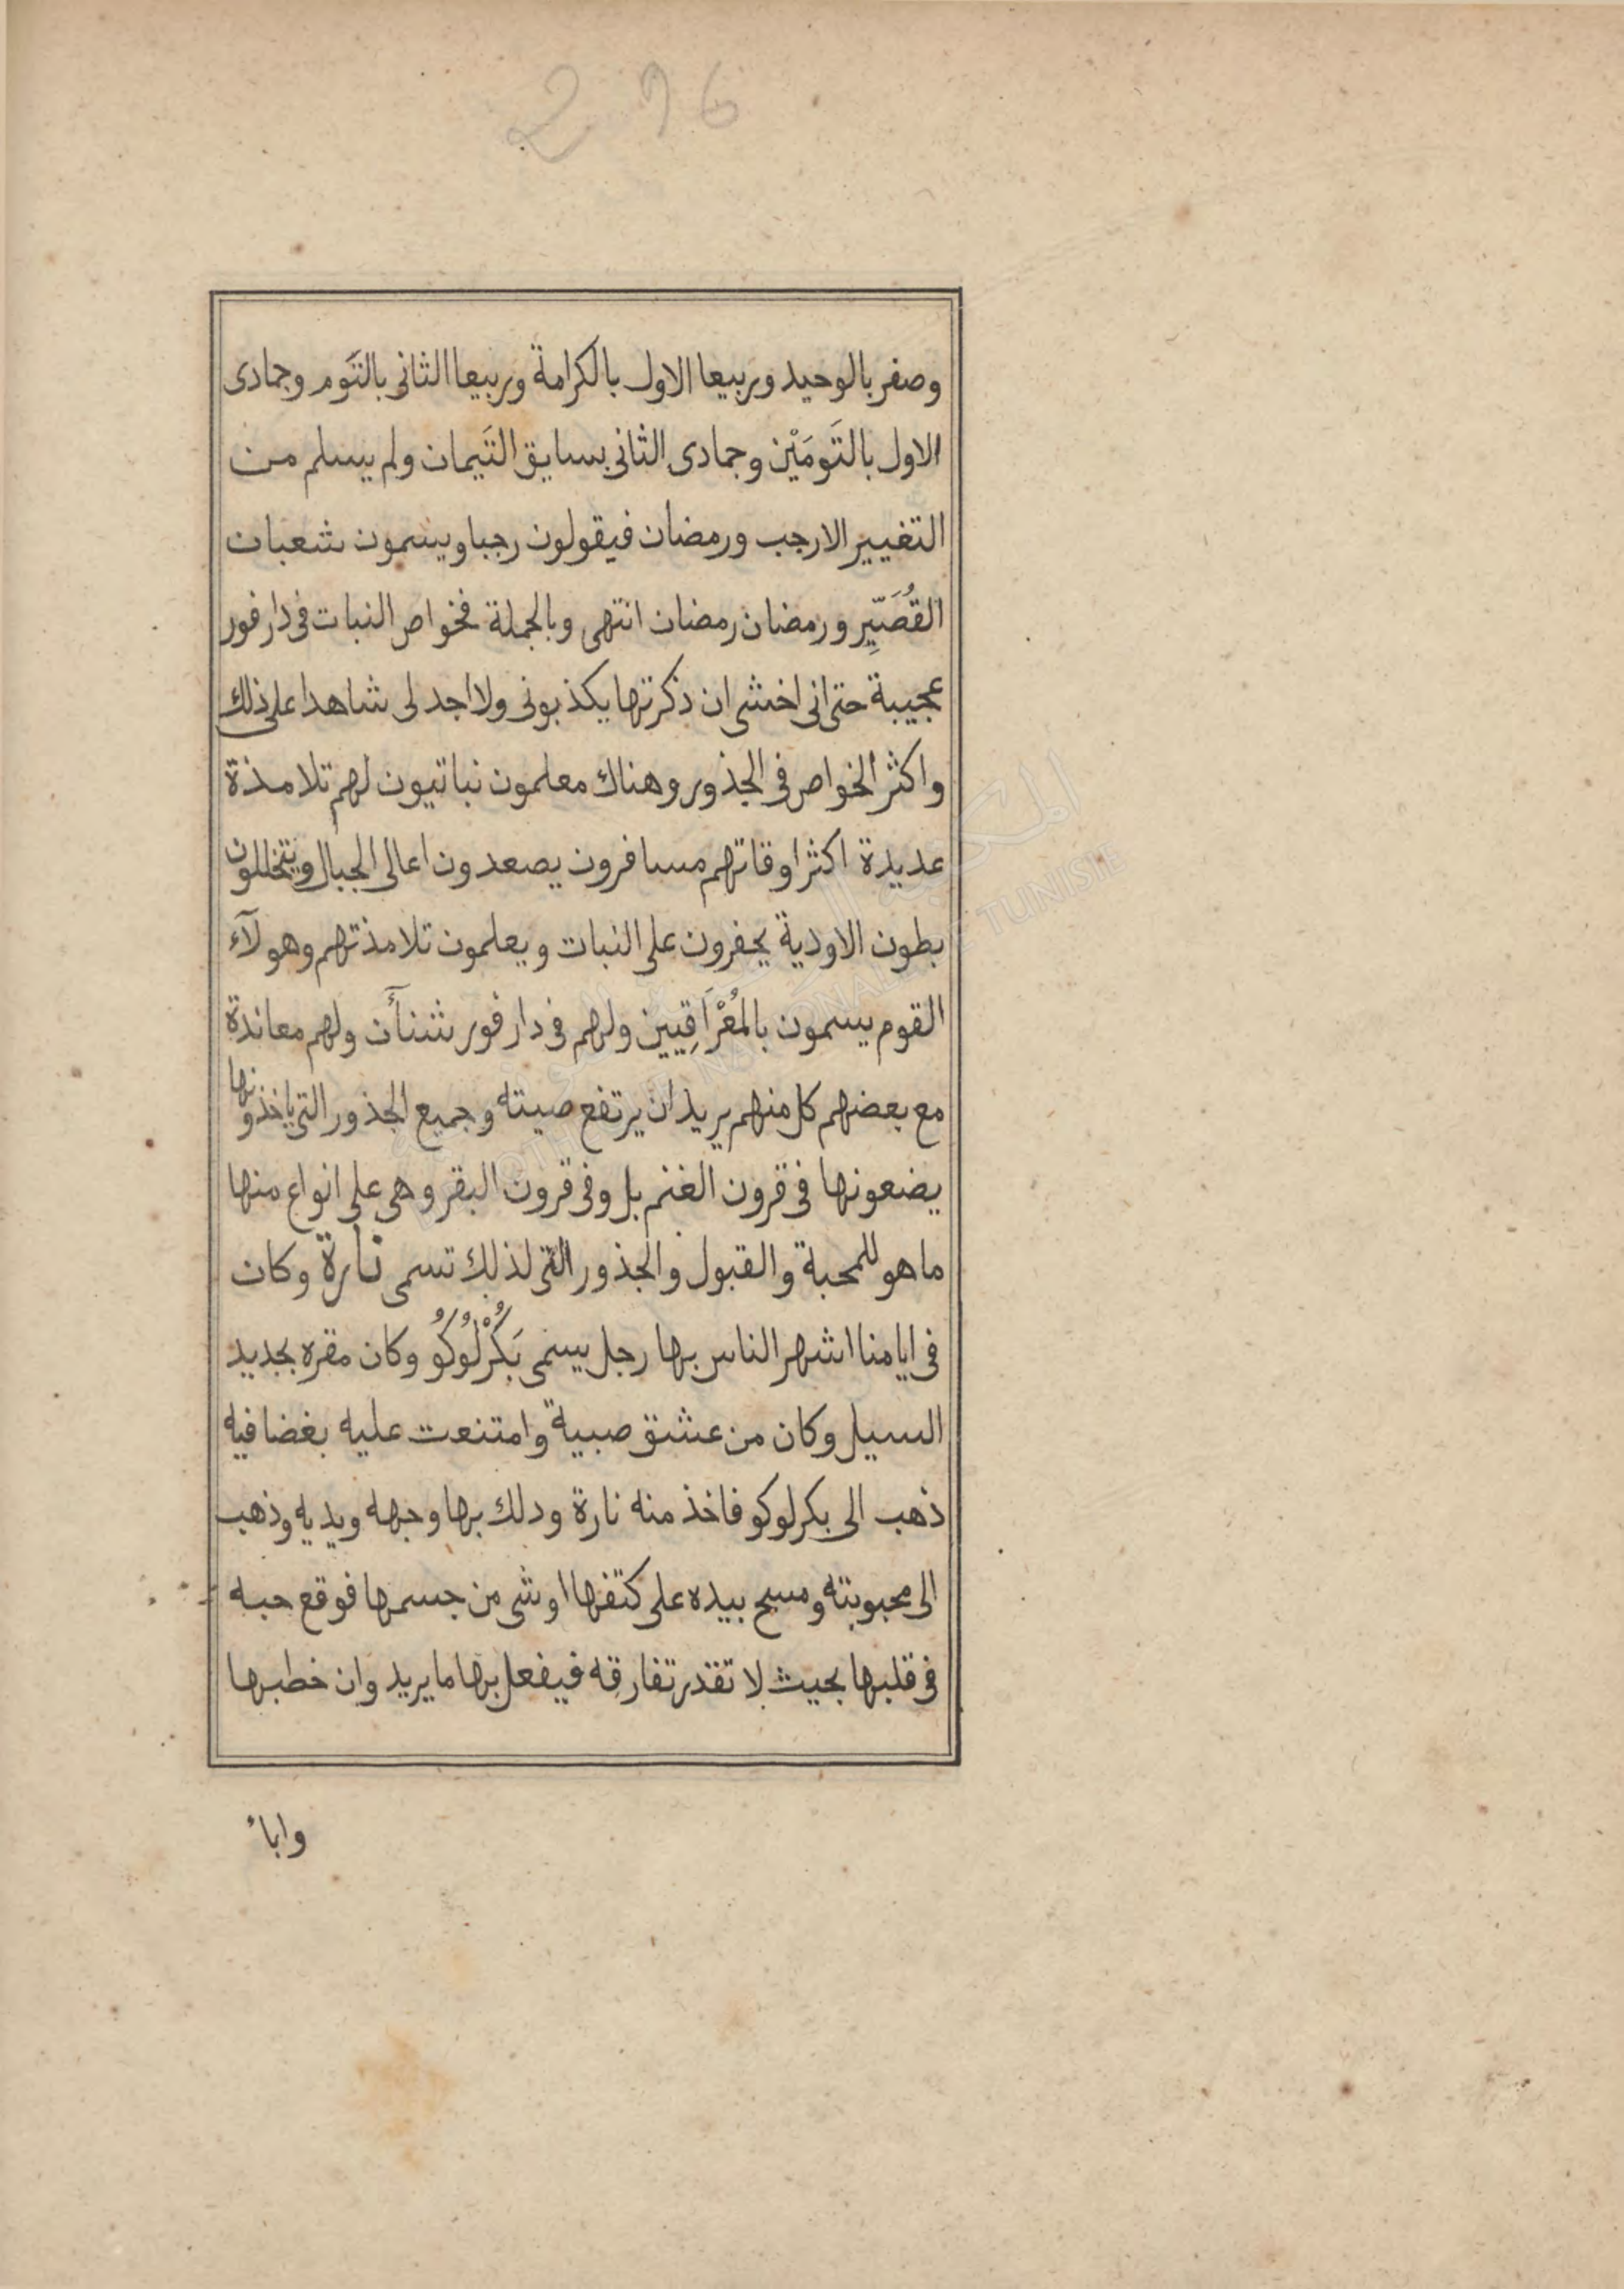 296
وصفر بالوحيد وربيعا الاول بالكرامة وربيعا الثانى بالتَوم وجمادى
الاول بالتَومَيْن وجمادى الثانى بسايق التَيمان ولم يسلم من
التغيير الا رجب ورمضان فيقولون رجبا ويسمون شعبان
القُصَيِّر ورمضان رمضان انتهى وبالجملة فخواص النبات فى دار فور
عجيبة حتى انى اخشى ان ذكرتها يكذبونى ولا اجد لى شاهدا على ذلك
واكثر الخواص فى الجذور وهناك معلمون نباتيون لهم تلامذة
عديدة اكثر اوقاتهم مسافرون يصعدون اعالى الجبال ويتخللون
بطون الاودية يحفرون على النبات ويعلمون تلامذتهم وهولآء
القوم يسمون بالمُعْرَاقِيين ولهم فى دار فور شنأن ولهم معاندة
مع بعضهم كل منهم يريد ان يرتفع صيته وجميع الجذور التى ياخذونها
يضعونها فى قرون الغنم بل وفى قرون البقر وهى على انواع منها
ما هو للمحبة والقبول والجذور التى لذلك تسمى نارة وكان
فى ايامنا اشهر الناس بها رجل يسمى بَكُرْلُوكُو وكان مقره بجديد
السيل وكان من عشق صبية وامتنعت عليه بغضا فيه
ذهب الى بكرلوكو فاخذ منه نارة ودلك بها وجهه ويديه وذهب
الى محبوبته ومسح بيده على كتفها او شى من جسمها فوقع حبه
فى قلبها بحيث لا تقدر تفارقه فيفعل بها ما يريد وان خطبها
وابا
المكتبة
BIBLIOTHEQUE NATIONALE DE TUNISIE